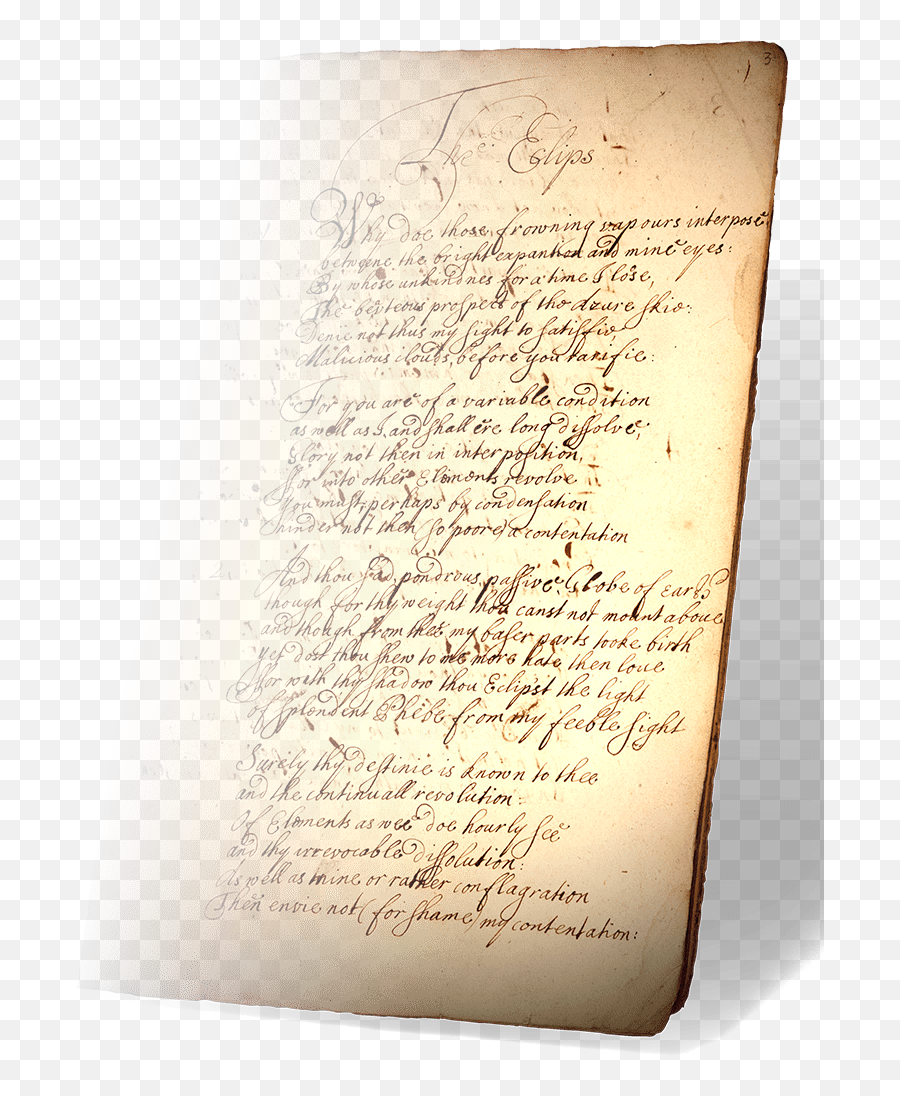 3
The Eclips
Why doe those frowning vapours interpose
betweene the bright expantion and mine eyes:
By whose unkindnes for a time I lose,
The bevteous prospect of the Azure skie:
Denie not thus my sight to satisfie,
Malicious clouds, before you rarifie:
For you are of a variable condition
as well as I, and shall ere long dissolve,
Glory not then in interposition,
For into other Elements revolve
You must, perhaps by condensation
hinder not then (so poore) a contentation
And thou sad, pondrous, passive, Globe of Earth
though for thy weight thou canst not mount above
and though from thee my baser parts tooke birth
yet dost thou shew to me more hate then love
For with thy shadow thou Eclipst the light
of splendent Phebe from my feeble sight
Surely thy destinie is known to thee
and the continuall revolution
Of Elements as wee doe hourly see
and thy irrevocable dissolution:
As well as mine or rather conflagration
Then envie not (for shame) my contentation: